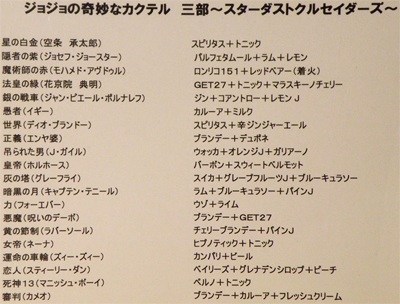 ジョジョの奇妙なカクテル 三部～スターダストクルセイダーズ～
星の白金(空条 承太郎) スピリタス+トニック
隠者の紫(ジョセフ・ジョースター) パルフェタムール+ラム+レモン
魔術師の赤(モハメド・アヴドゥル) ロンリコ151+レッドベアー(着火)
法皇の緑(花京院 典明) GET27+トニック+マラスキーノチェリー
銀の戦車(ジャン・ピエール・ポルナレフ) ジン+コアントロー+レモンJ
愚者(イギー) カルーア+ミルク
世界(ディオ・ブランドー) スピリタス+辛ジンジャーエール
正義(エンヤ婆) ブランデー+デュボネ
吊られた男(J・ガイル) ウォッカ+オレンジJ+ガリアーノ
皇帝(ホルホース) バーボン+スウィートベルモット
灰の塔(グレーフライ) スイカ+グレープフルーツJ+ブルーキュラソー
暗黒の月(キャプテン・テニール) ラム+ブルーキュラソー+パインJ
力(フォーエバー) ウゾ+ライム
悪魔(呪いのデーボ) ブランデー+GET27
黄の節制(ラバーソール) チェリーブランデー+パインJ
女帝(ネーナ) ヒプノティック+トニック
運命の車輪(ズィー・ズィー) カンパリ+ビール
恋人(スティーリー・ダン) ベイリーズ+グレナデンシロップ+ピーチ
死神13(マニッシュ・ボーイ) ペルノ+トニック
審判(カメオ) ブランデー+カルーア+フレッシュクリーム